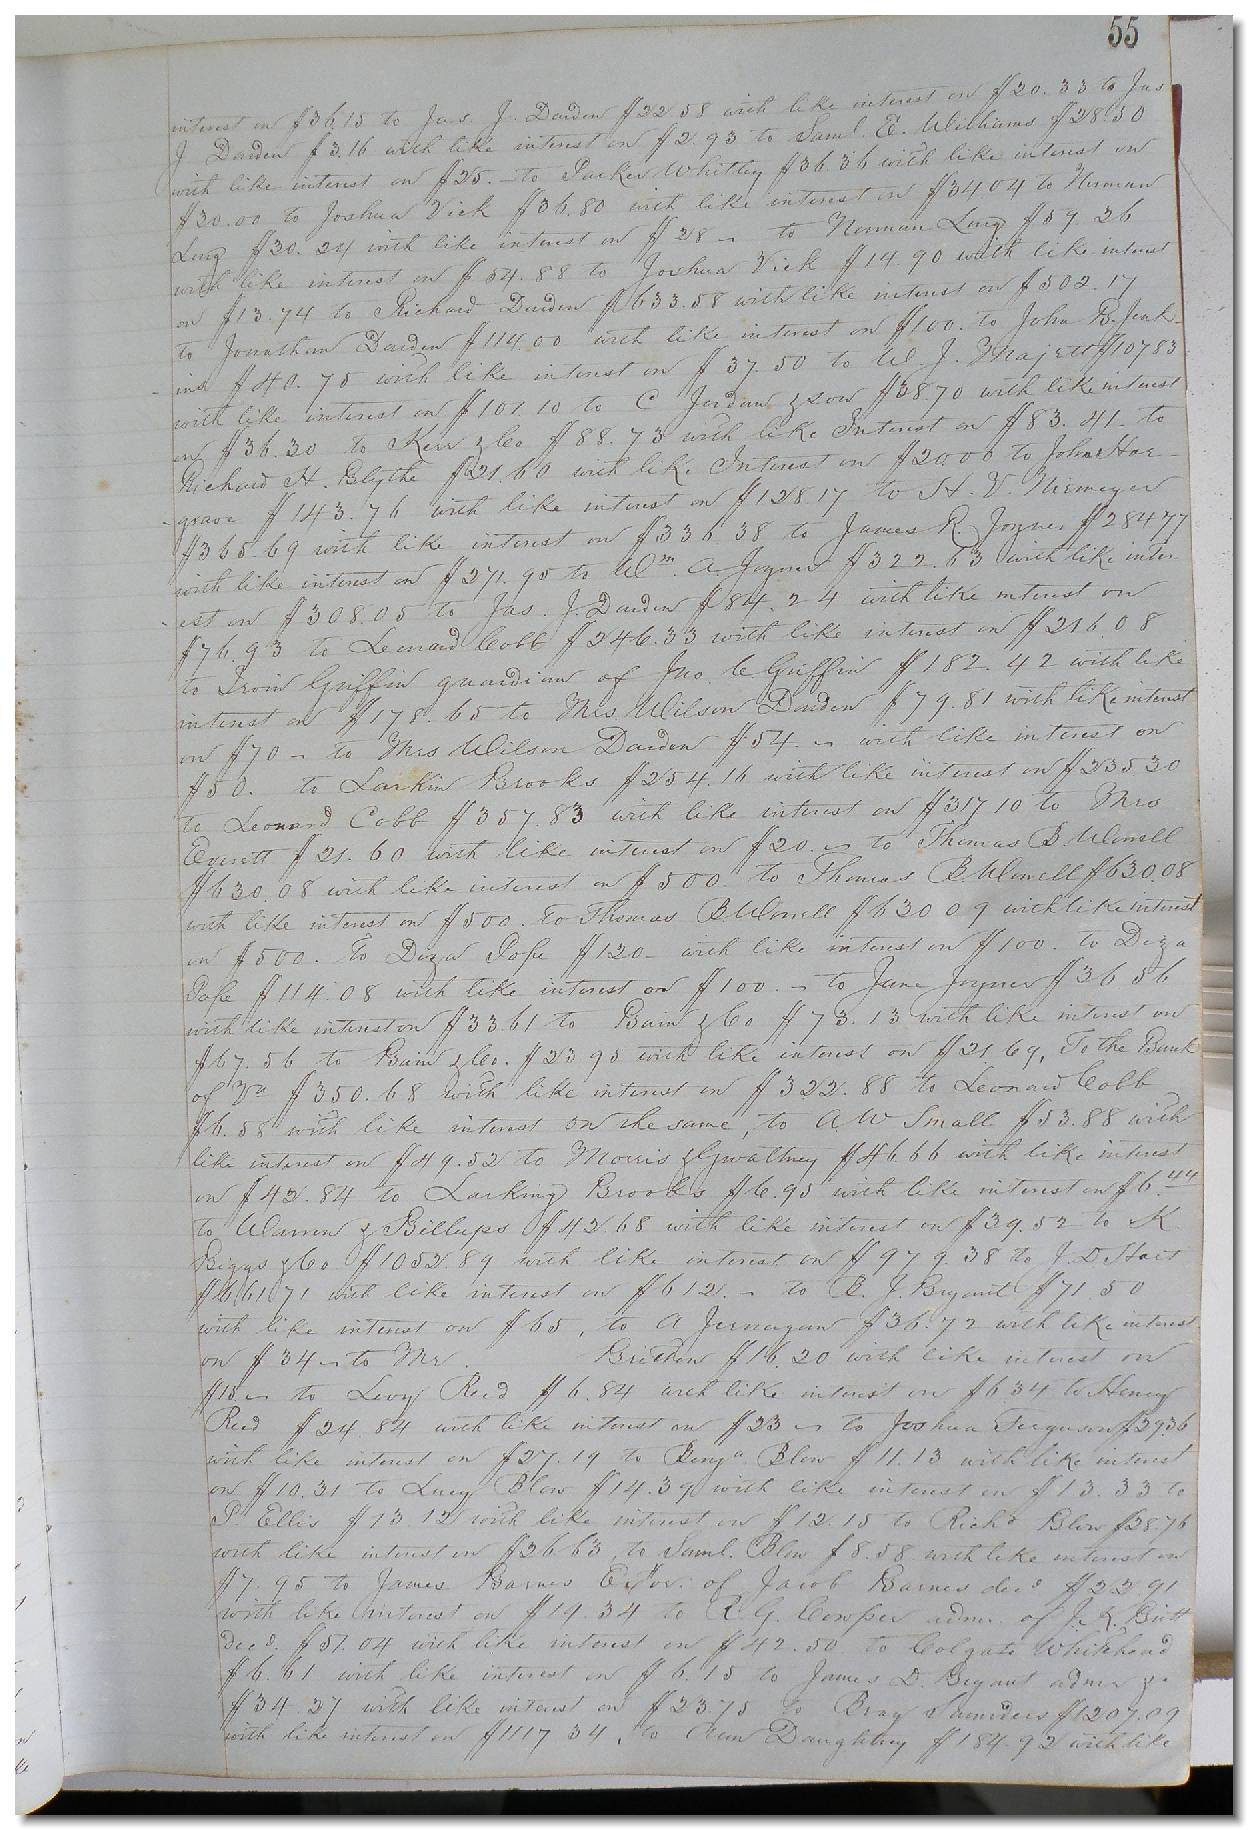 55
interest on $36.15 to Jas. J. Darden $22 58 with like interest on $20.33 to Jas
J Darden $3.16 with like interest on $2.93 to Saml. E. Williams $28.50
with like interest on $25. to Parker Whitley $36.36 with like interest on
$30.00 to Joshua Vick $36.80 with like interest on $34 04 to Herman
Long $30.24 with like interest on $28 to Herman Long $59 26
with like interest on $54.88 to Joshua Vick $14.90 with like interest
on $13.74 to Richard Darden $633.58 with like interest on $502.17
to Jonathan Darden $114.00 with like interest on $100. to John B. Jenk-
ins $40.75 with like interest on $37.50 to W J. Majett $107 83
with like interest on $101.10 to C Jordan & son $38.70 with like interest
on $36.30 to Kerr & Co $88.73 with like Interest on $83.41 to
Richard H. Blythe $21.60 with like Interest on $20.00 to John Har-
grave $143.76 with like interest on $128.17 to H. V. Niemeyer
$365.69 with like interest on $336 38 to James R Joyner $284 77
with like interest on $271.95 to Wm. A Joyner $322.63 with like inter
est on $308.05 to Jas. J. Darden $84.24 with like interest on
$76.93 to Leonard Cobb $246.33 with like interest on $216.08
to Irvin Griffin guardian of Jno. C Griffin $182.42 with like
interest on $178.65 to Mrs Wilson Darden $79.81 with like interest
on $70 to Mrs Wilson Darden $54 with like interest on
$50. to Larkin Brooks $254.16 with like interest on $235 30
to Leonard Cobb $357.83 with like interest on $317 10 to Mrs
Everitt $21.60 with like interest on $20. to Thomas B Worrell
$630.08 with like interest on $500 to Thomas B. Worrell $630.08
with like interest on $500. to Thomas B Worrell $630 09 with like interest
on $500. to Diza Pope $120 with like interest on $100. to Diza
Pope $114.08 with like interest on $100. to Jane Joyner $36 56
with like interest on $33.61 to Bain & Co $73.13 with like interest on
$67.56 to Bain & Co. $23 95 with like interest on $21 69, To the Bank
of Va $350.68 with like interest on $322.88 to Leonard Cobb
$6.58 with like interest on the same, to A W Small $53.88 with
like interest on $49.52 to Morris & Gwaltney $46.66 with like interest
on $42.84 to Larking Brooks $6.95 with like interest on $6.44
to Warren & Billups $42.68 with like interest on $39.52 to K
Biggs & Co $1052.89 with like interest on $979.38 to J. D Hart
$661 71 with like interest on $612. to B. J. Bryant $71.50
with like interest on $65, to A Jernagan $36.72 with like interest
on $34 to Mr. Britten $16.20 with like interest on
$15 to Levy Reid $6.84 with like interest on $6 34 to Henry
Reid $24.84 with like interest on $23 to Joshua Ferguson $29 36
with like interest on $27.19 to Benja. Blow $11.13 with like interest
on $10.31 to Lucy Blow $14.39 with like interest on $13.33 to
P. Ellis $13.12 with like interest on $12.15 to Richd Blow $28.76
with like interest on $26 63, to Saml. Blow $8.58 with like interest on
$7.95 to James Barnes Exor. of Jacob Barnes decd $22 91
with like interest on $19.34 to R. G. Cowper admr. of J. K. Britt
decd. $51.04 with like interest on $42.50 to Colgate Whitehead
$6.61 with like interest on $6.15 to James D. Bryant admr &c
$34.27 with like interest on $23 75 to Bray Saunders $1207.09
with like interest on $1117 34, to Daughtrey $184.92 with like